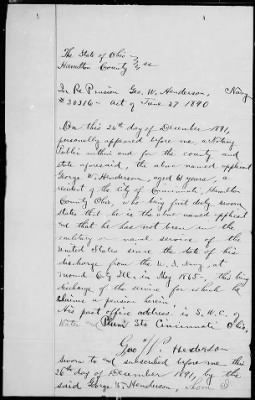 The State of Ohio
Hamilton County } ss
In Re Pension Geo. W. Henderson, Navy
#30316 - Act of June 27 1890
On this 26th day of December 1891,
personally appeared before me a Notary
Public within and for the county and
state aforesaid, the above named applicant
George W. Henderson, aged 61 years, a
resident of the City of Cincinnati Hamilton
County Ohio, who being first duly sworn
states that he is the above named applicant
and that he has not been in the
military or naval service of the
United States since the date of his
discharge from the U. S. Navy, at
Mound City Ill. in May 1865 - this being
discharge of the service for which he
claims a pension herein.
His post office address is S.W.C. of
Water and Plum Sts Cincinnati Ohio,
Geo W Henderson
Sworn to and subscribed before me this
26th day of December 1891, by the
said George W Henderson,